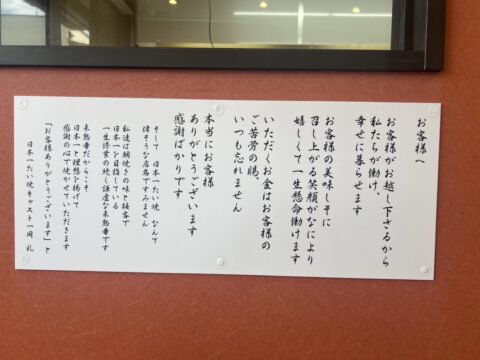 お客様へ
お客様がお越し下さるから
私たちが働け、
幸せに暮らせます
お客様の美味しそに
召し上がる笑顔がなにより
嬉しくて一生懸命働けます
いただくお金はお客様の
ご苦労の賜、
いつも忘れません
本当にお客様
ありがとうございます
感謝ばかりです
そして 日本一たい焼 なんて
偉そうな店名ですみません
私達は鯛焼きの味と接客で
日本一を目指している
一生修業の続く謙虚な未熟者です
未熟者だからこそ
日本一と理想を掲げて
感謝の心で焼かせていただきます
「お客様ありがとうございます」と
日本一たい焼キャスト一同 礼